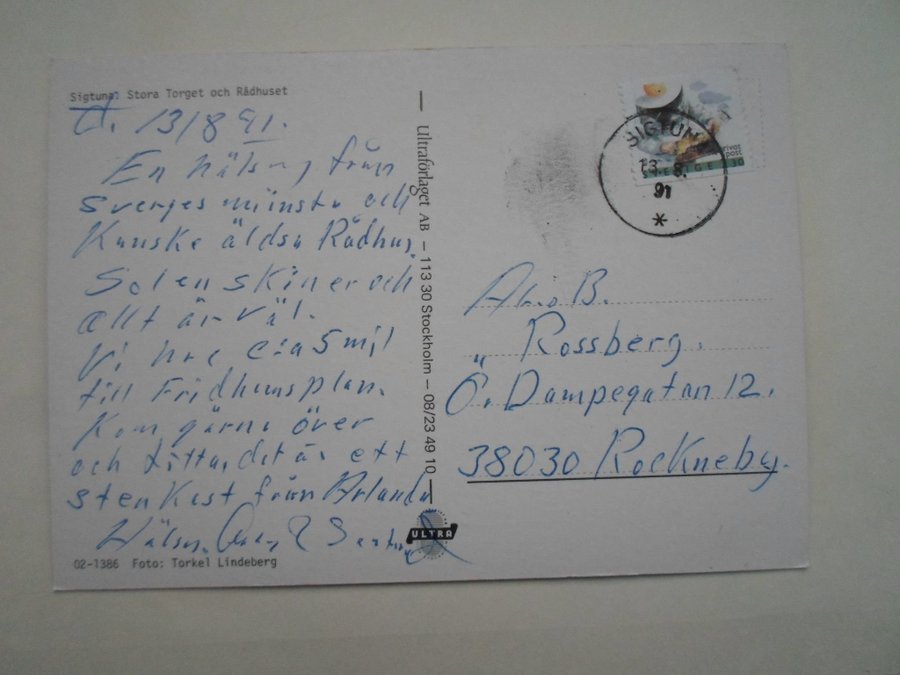 Sigtuna: Stora Torget och Rådhuset
d. 13/8 91.
En hälsning från
Sveriges minsta och
Kanske äldsta Rådhus.
Solen skiner och
allt är väl.
Vi har ca 5 mil
till Fridhemsplan.
Kom gärna över
och titta, det är ett
stenkast från Arlanda
Hälsn.
02-1386 Foto: Torkel Lindeberg
Ultraförlaget AB – 113 30 Stockholm – 08/23 49 10
ULTRA
SIGTUNA
13.8.
91
*
SVERIGE
B.
" Rossberg.
Ö. Dampegatan 12.
38030 Rockneby.